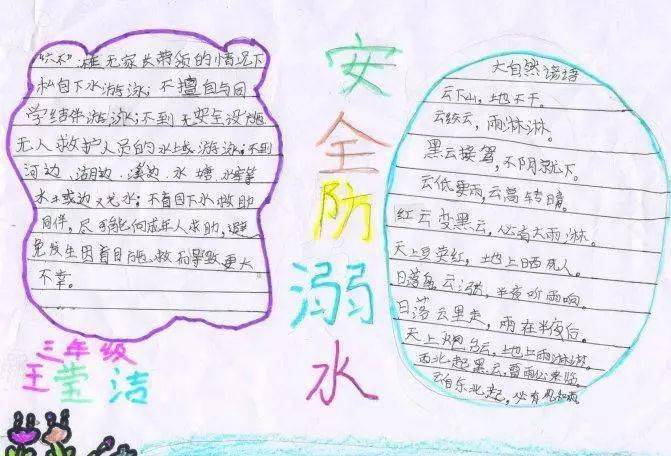 "六不":在无家长带领的情况下
私自下水游泳;不擅自与同
学结伴游泳;不到无安全设施
无人救护人员的水域游泳;不到
河边、湖边、溪边、水塘、
水;不盲目下水救助
同伴,尽可能向成年人求助,避
免发生因盲目施救而导致更大
不幸。
三年级
王莹洁
安
全
防
溺
水
大自然谚语
云下山,地不干。
云绞云,雨淋淋。
黑云接驾,不阴就下。
云低要雨,云高转晴。
红云变黑云,必有大雨淋。
天上豆荚红,地上晒死人。
日落云涨,半夜听雨响。
日落云里走,雨在半夜后。
天上云,地上雨淋淋。
西北起黑云,雷雨必来临。
云自东北起,必有风和雨。